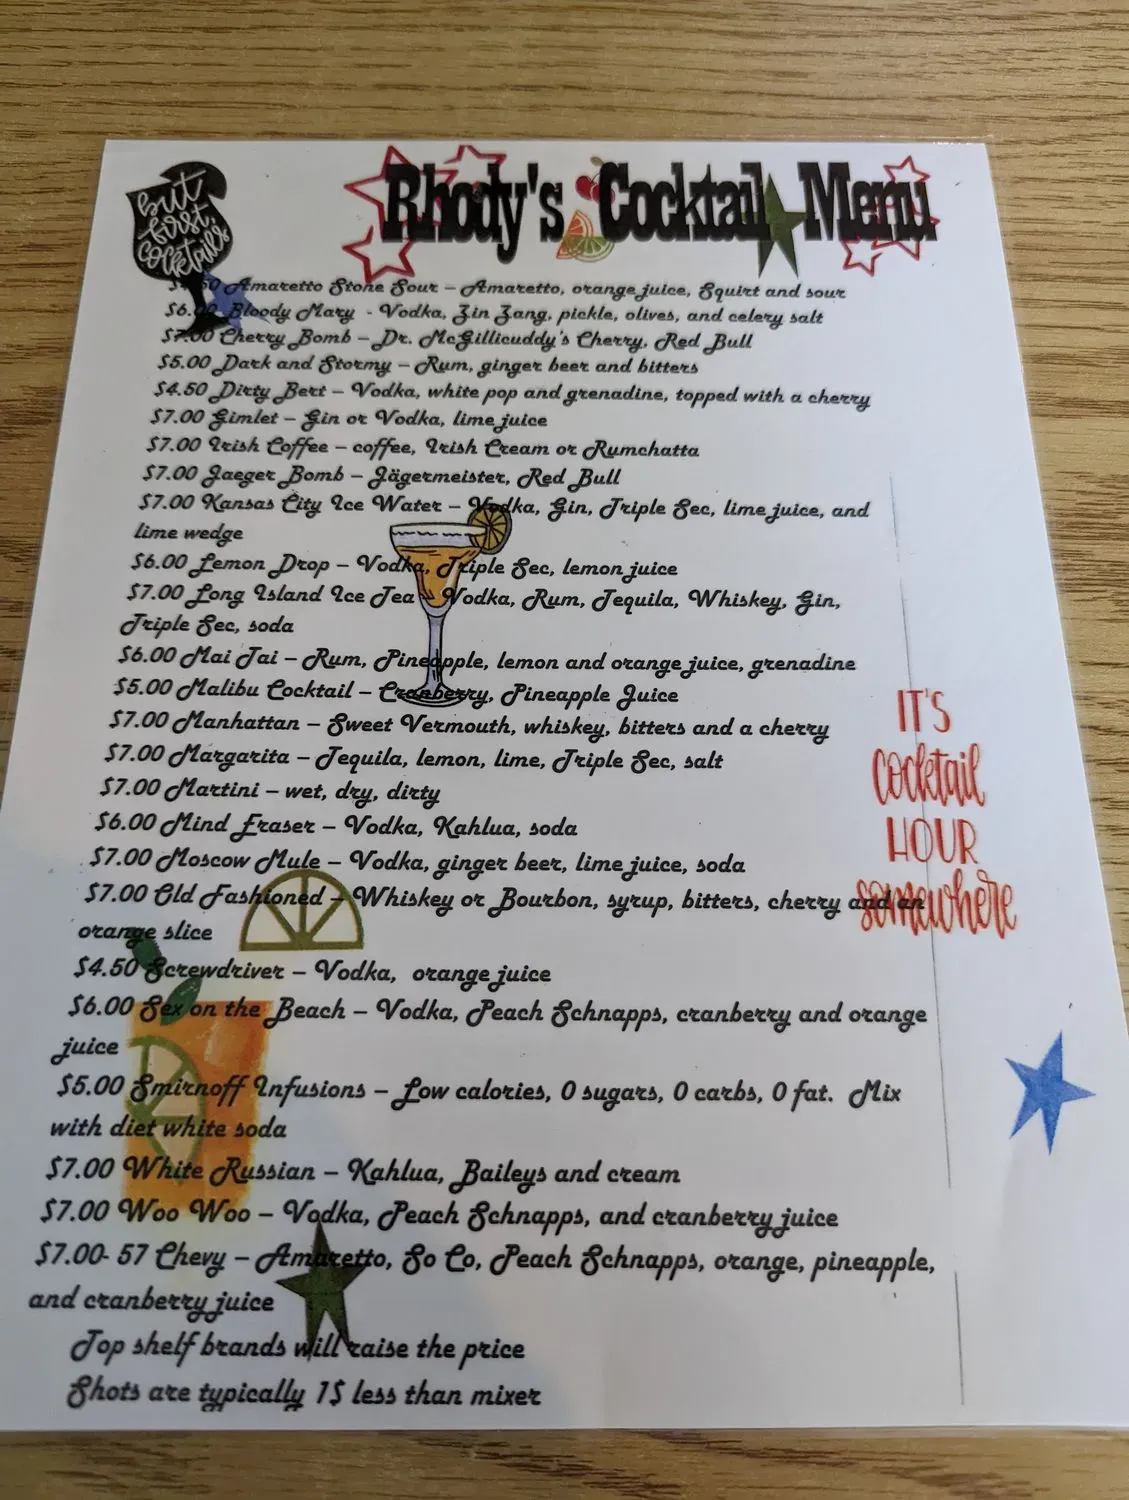 but first, cocktails
Rhody's Cocktail Menu
Amaretto Stone Sour – Amaretto, orange juice, Squirt and sour
Bloody Mary - Vodka, Zin Zang, pickle, olives, and celery salt
$7.00 Cherry Bomb – Dr. McGillicuddy's Cherry, Red Bull
$5.00 Dark and Stormy – Rum, ginger beer and bitters
$4.50 Dirty Bert – Vodka, white pop and grenadine, topped with a cherry
$7.00 Gimlet – Gin or Vodka, lime juice
$7.00 Irish Coffee – coffee, Irish Cream or Rumchatta
$7.00 Jaeger Bomb – Jägermeister, Red Bull
$7.00 Kansas City Ice Water – Vodka, Gin, Triple Sec, lime juice, and
lime wedge
$6.00 Lemon Drop – Vodka, Triple Sec, lemon juice
$7.00 Long Island Ice Tea – Vodka, Rum, Tequila, Whiskey, Gin,
Triple Sec, soda
$6.00 Mai Tai – Rum, Pineapple, lemon and orange juice, grenadine
$5.00 Malibu Cocktail – Cranberry, Pineapple Juice
$7.00 Manhattan – Sweet Vermouth, whiskey, bitters and a cherry
$7.00 Margarita – Tequila, lemon, lime, Triple Sec, salt
$7.00 Martini – wet, dry, dirty
$6.00 Mind Eraser – Vodka, Kahlua, soda
$7.00 Moscow Mule – Vodka, ginger beer, lime juice, soda
$7.00 Old Fashioned – Whiskey or Bourbon, syrup, bitters, cherry and an
orange slice
$4.50 Screwdriver – Vodka, orange juice
$6.00 Sex on the Beach – Vodka, Peach Schnapps, cranberry and orange
juice
$5.00 Smirnoff Infusions – Low calories, 0 sugars, 0 carbs, 0 fat. Mix
with diet white soda
$7.00 White Russian – Kahlua, Baileys and cream
$7.00 Woo Woo – Vodka, Peach Schnapps, and cranberry juice
$7.00- 57 Chevy – Amaretto, So Co, Peach Schnapps, orange, pineapple,
and cranberry juice
Top shelf brands will raise the price
Shots are typically 1$ less than mixer
IT'S
cocktail
HOUR
somewhere